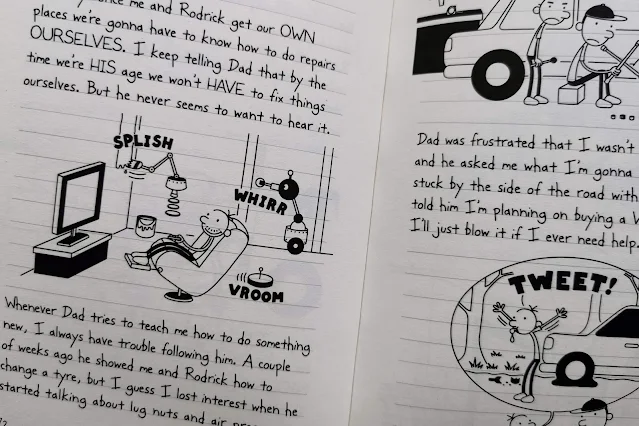 me and Rodrick get our OWN
places we're gonna have to know how to do repairs
OURSELVES. I keep telling Dad that by the
time we're HIS age we won't HAVE to fix things
ourselves. But he never seems to want to hear it.
SPLISH
WHIRR
VROOM
Whenever Dad tries to teach me how to do something
new, I always have trouble following him. A couple
of weeks ago he showed me and Rodrick how to
change a tyre, but I guess I lost interest when he
started talking about lug nuts and air
Dad was frustrated that I wasn't
and he asked me what I'm gonna
stuck by the side of the road with
told him I'm planning on buying a
I'll just blow it if I ever need help.
TWEET!